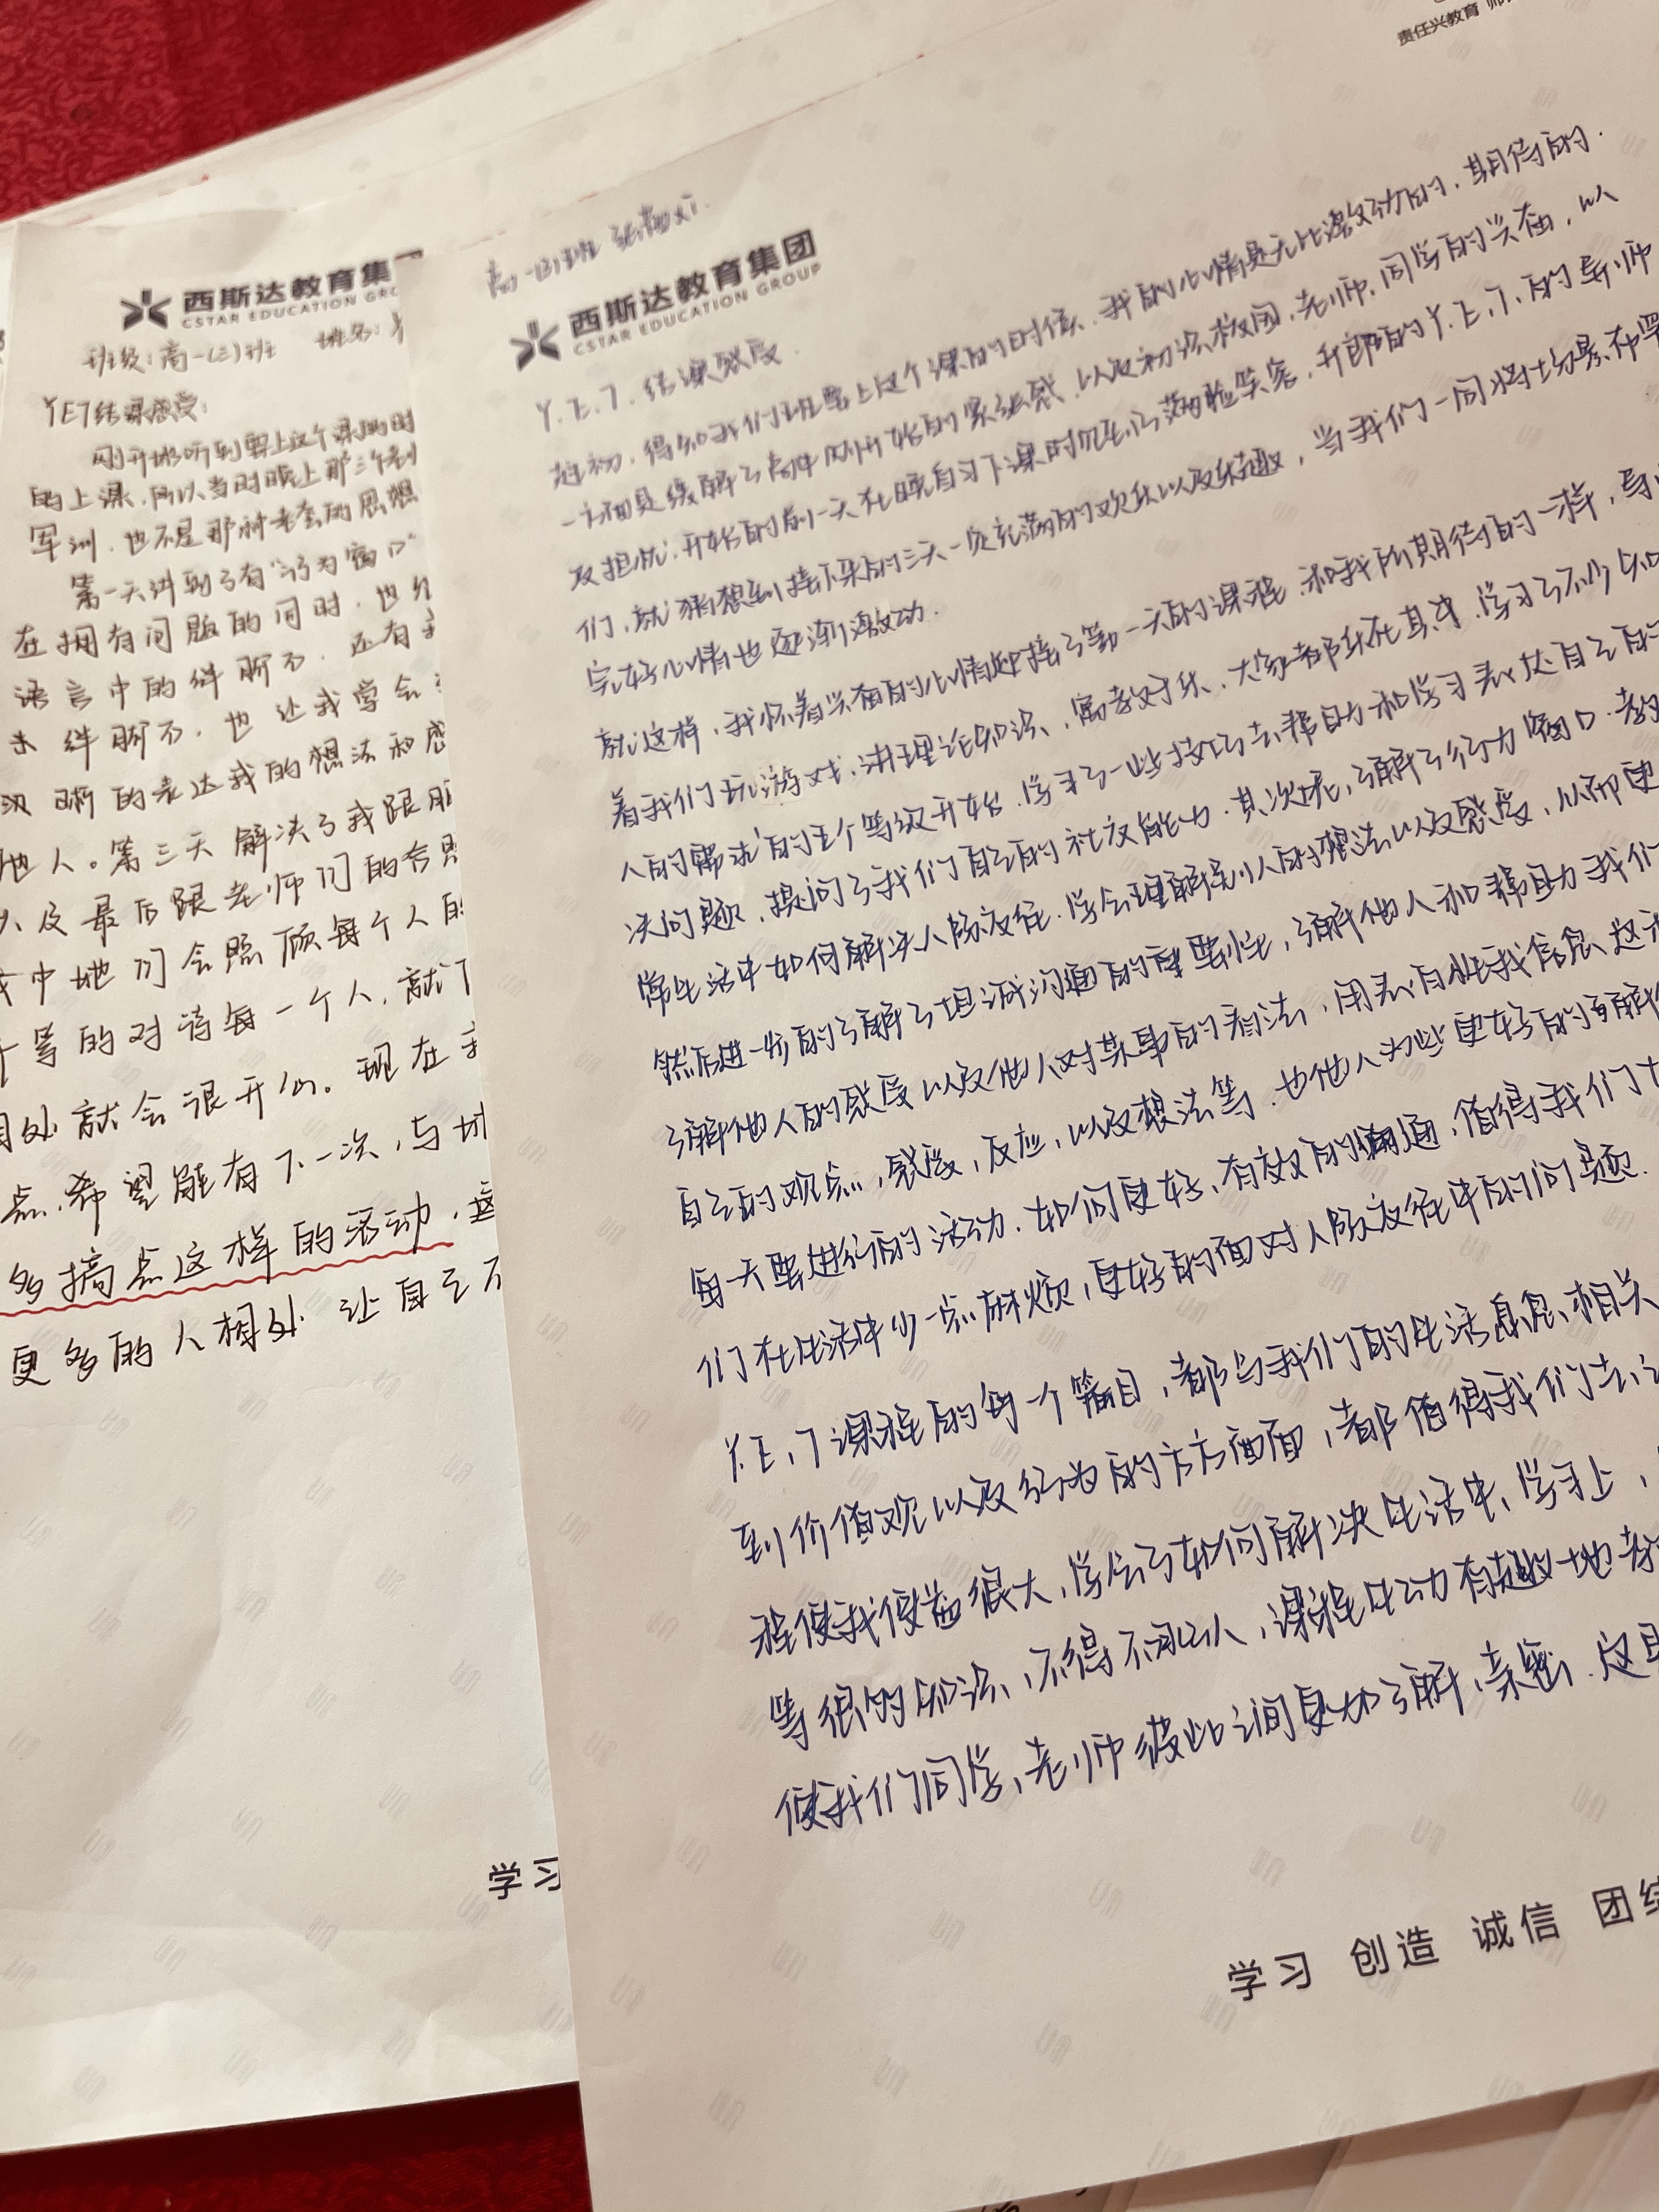 西斯达教育集
CSTAR EDUCATION GRO
班级：高一(三)班 姓名：
YET结课感受：
刚开始听到要上这个课的时
的上课，所以当时晚上那三个
军训，也不是那种老套的思想
第一天讲到了有"行为窗口"
在拥有问题的同时，也
语言中的绊脚石，还有
绊脚石，也让我学会
晰的表达我的想法和感
他人。第三天解决了我跟
以及最后跟老师们的合照
中他们会照顾每个人的
等的对待每一个人，就
相处就会很开心。现在
点，希望能有下一次，与
多搞点这样的活动，
更多的人相处，让自己不
学习
责任兴教育 师
高一(3)班 张
西斯达教育集团
CSTAR EDUCATION GROUP
Y.E.T.结课感受.
起初，得知我们班要上这个课的的时候，我的心情是无比激动的，期待的.
一方面是缓解了高中刚开始的紧张感，以及初次校园，老师，同学的兴奋，以
及担忧.开始的前一天在晚自习下课时见到了满脸笑容，开朗的Y.E.T.的导师
们，就猜想到接下来的三天一定充满的欢乐以及乐趣，当我们一同将场景布置
完好心情也逐渐激动.
就这样，我怀着兴奋的心情迎接了第一天的课程.和我所期待的一样，导
着我们玩游戏，讲理论知识，寓教于乐，大家都乐在其中，学习了不少知
人的需求的五个等级开始，学习了一些技巧去帮助和学习表达自己的
决问题，提问了我们自己的社交能力.其次就，了解了行为窗口.教
常生活中如何解决人际交往.学会理解别人的想法以及感受，从而更
然后进一步的了解了坦诚沟通的重要性，了解他人和帮助我们
了解他人的感受以及他人对某事的看法，用表白性我信息，这
自己的观点，感受，反应，以及想法等.也他人为些更好的了解
每一天要进行的活动.如何更好，有效的沟通，值得我们
们在生活中少一点麻烦，更好的面对人际交往中的问题.
Y.E.T课程的每一个篇目，都与我们的生活息息相关
到价值观以及行为的方方面面，都值得我们去
程使我受益很大，学会了如何解决生活中，学习上，
等很多知识，不得不承认，课程生动有趣地
使我们同学，老师彼此之间更加了解，亲密.这
学习 创造 诚信 团结